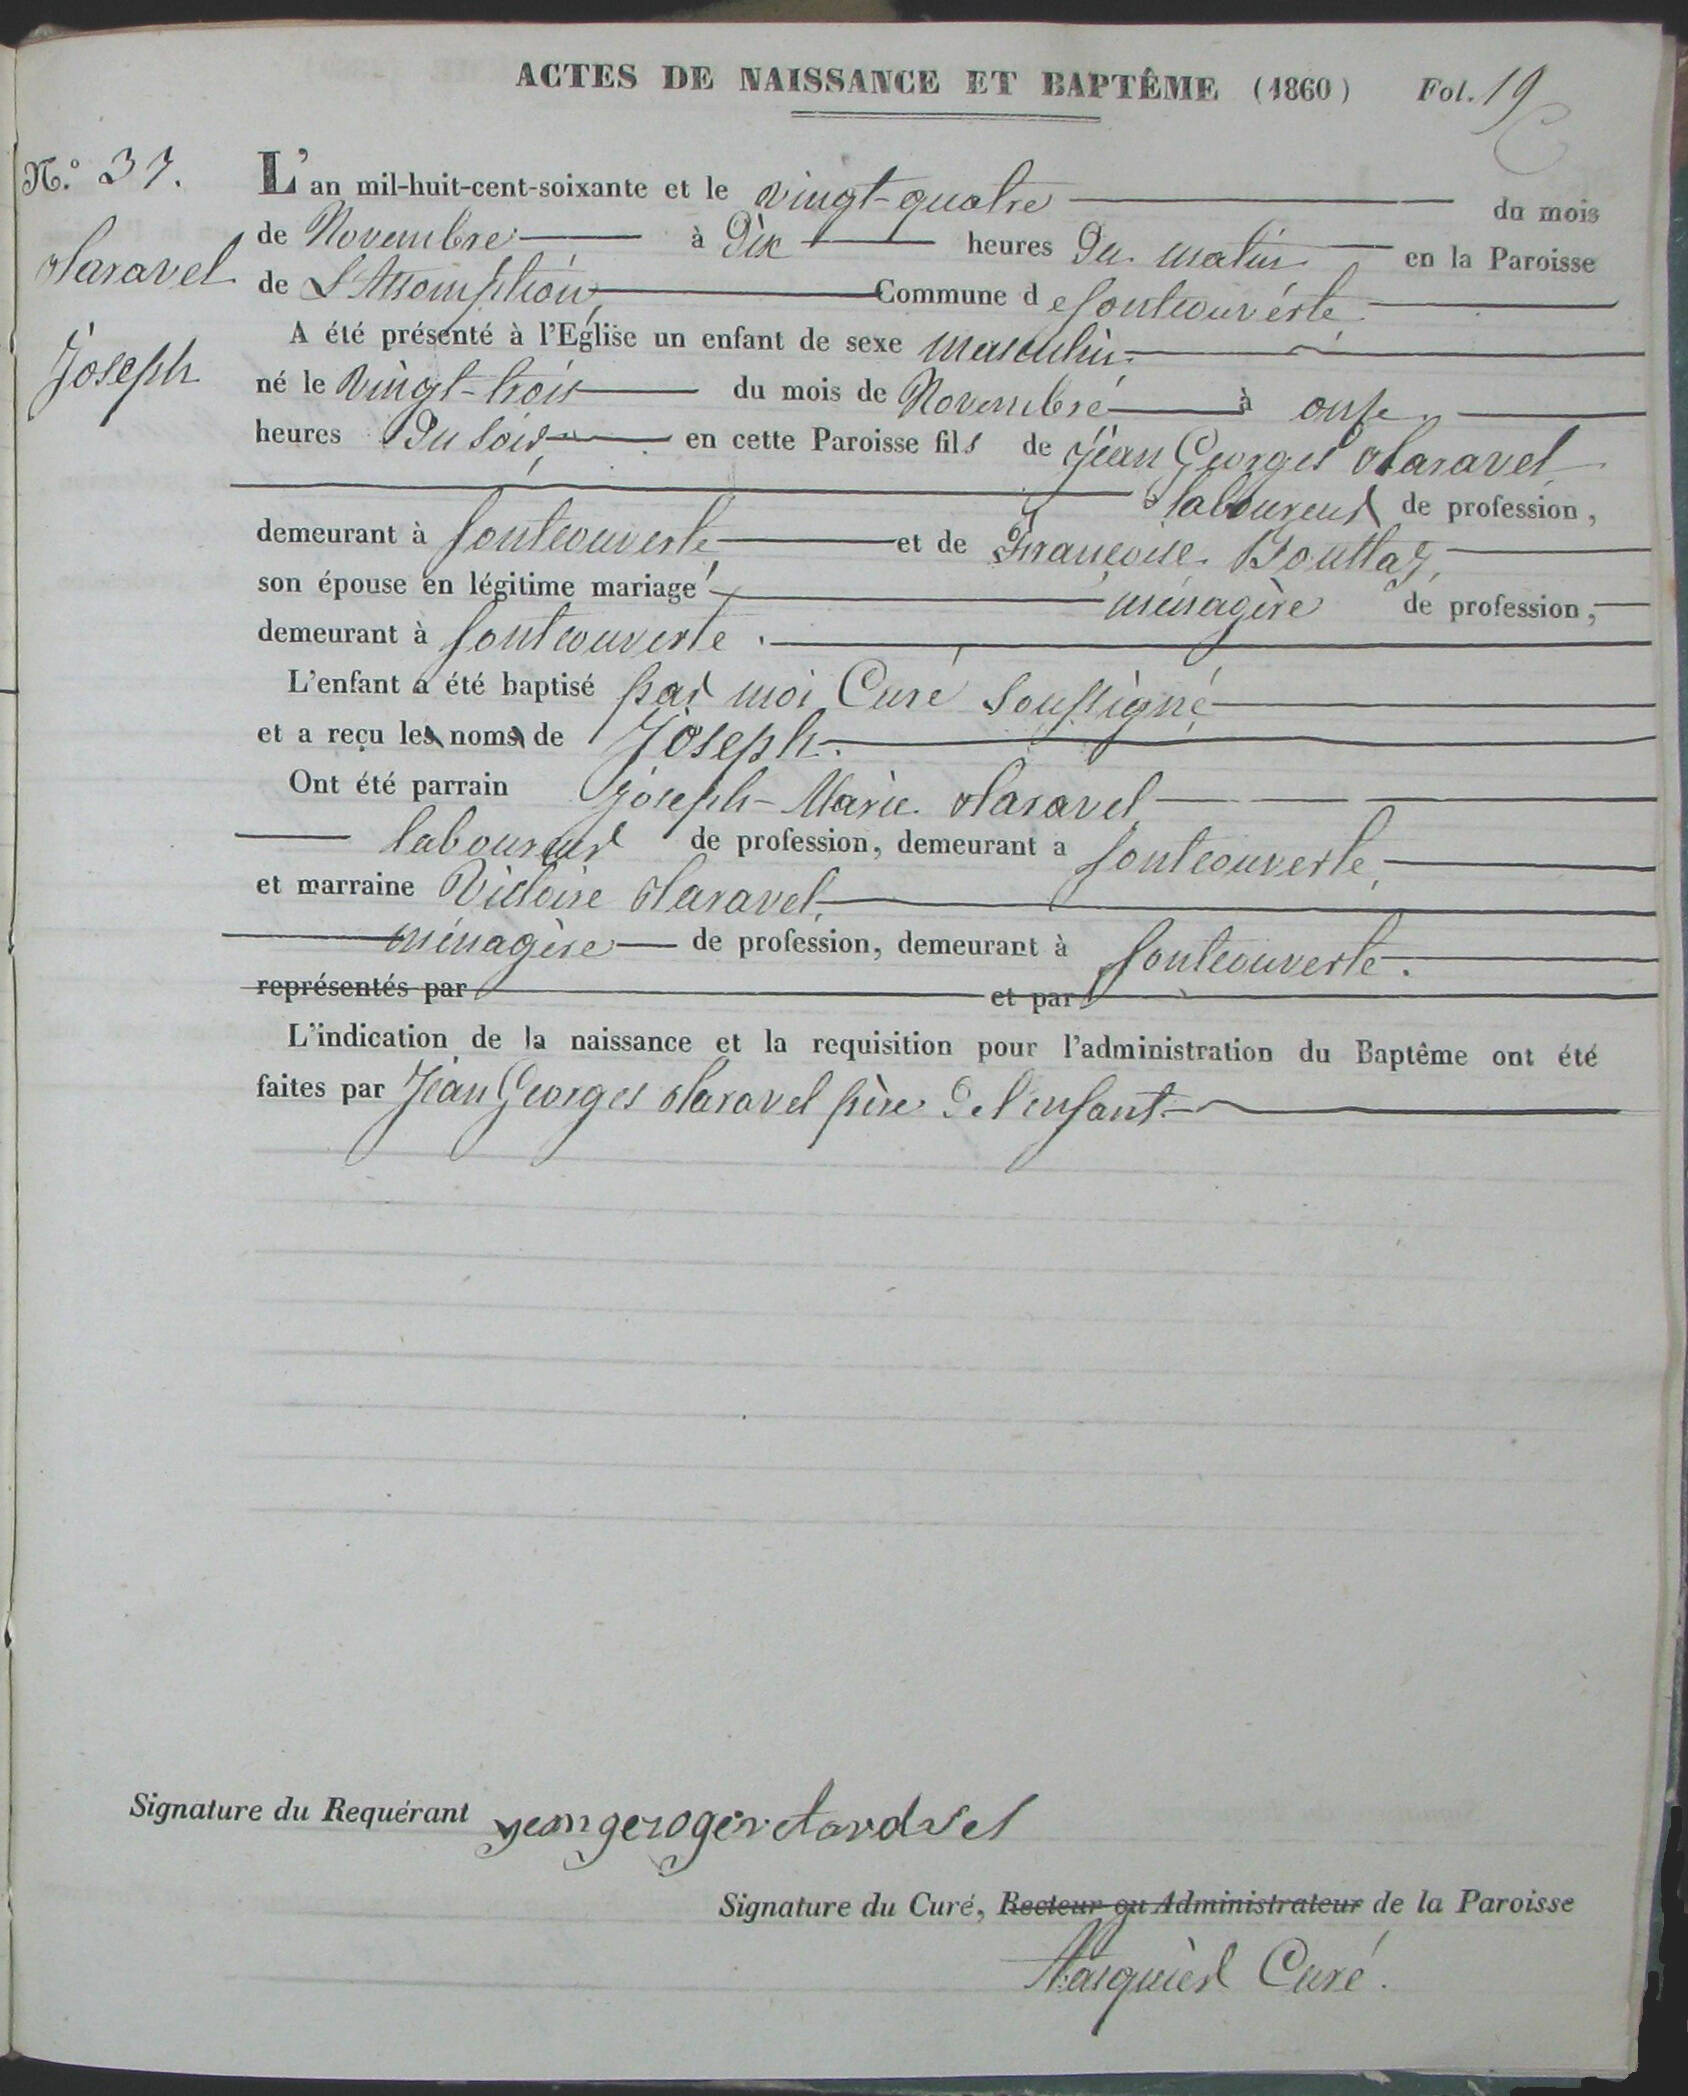 ACTES DE NAISSANCE ET BAPTÊME (1860) Fol. 19
N.º 37.
Laravel
Joseph
L'an mil-huit-cent-soixante et le vingt-quatre du mois
de Novembre à Dix heures Du matin en la Paroisse
de L'Assomption, Commune de fontcouverte
A été présenté à l'Eglise un enfant de sexe masculin.
né le vingt-trois du mois de Novembre à onze
heures Du soir, en cette Paroisse fils de Jean Georges Laravel
laboureur de profession,
demeurant à fontcouverte et de Françoise Bouttaz,
son épouse en légitime mariage ménagère de profession,
demeurant à fontcouverte.
L'enfant a été baptisé par moi Curé soussigné
et a reçu les noms de Joseph.
Ont été parrain Joseph-Marie Laravel
laboureur de profession, demeurant a fontcouverte,
et marraine Victoire Laravel,
ménagère de profession, demeurant à fontcouverte.
représentés par et par
L'indication de la naissance et la requisition pour l'administration du Baptême ont été
faites par Jean Georges Laravel père de l'enfant.
Signature du Requérant
Signature du Curé, Recteur ou Administrateur de la Paroisse
Curé.